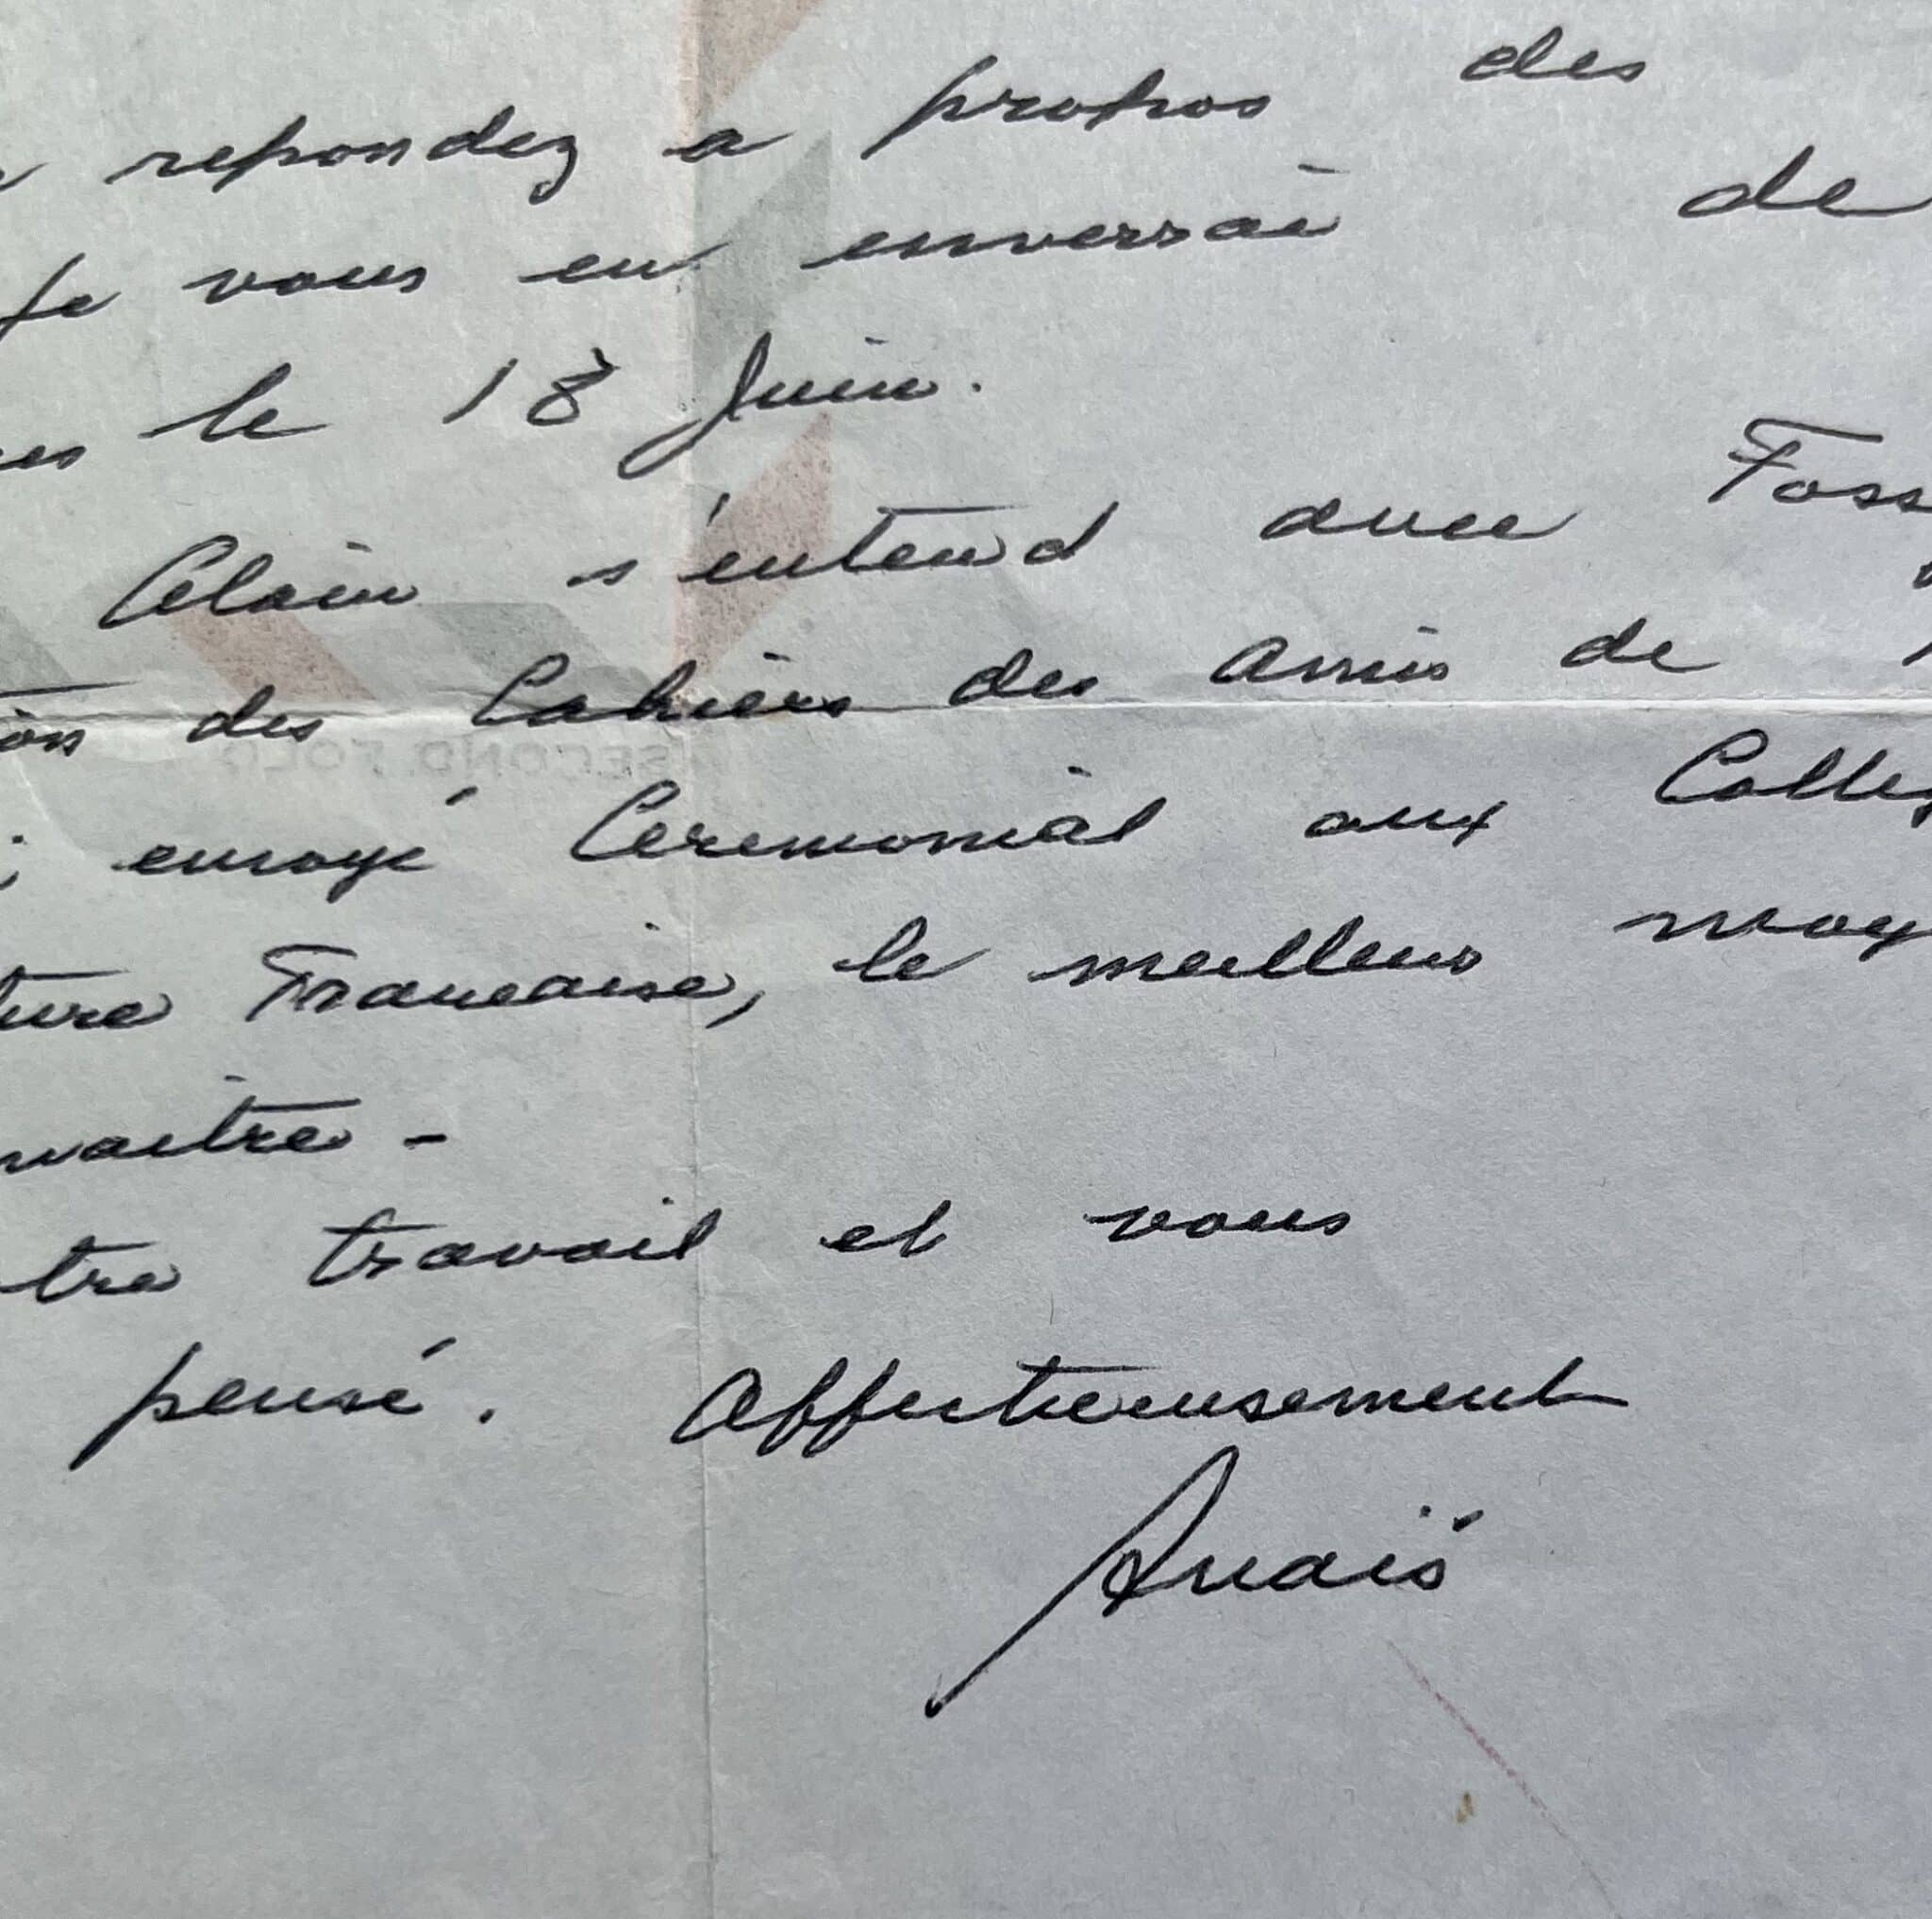 repondez a propos des
Je vous en enverrai de
le 18 Juin.
Alain s'entend avec Foss
des Cahiers des Amis de
envoyé Ceremonial aux Colleg
ture Francaise, le meilleur moy
naitre -
tre travail et vous
pensé. Affectueusement
Anaïs
SECOND FOLD